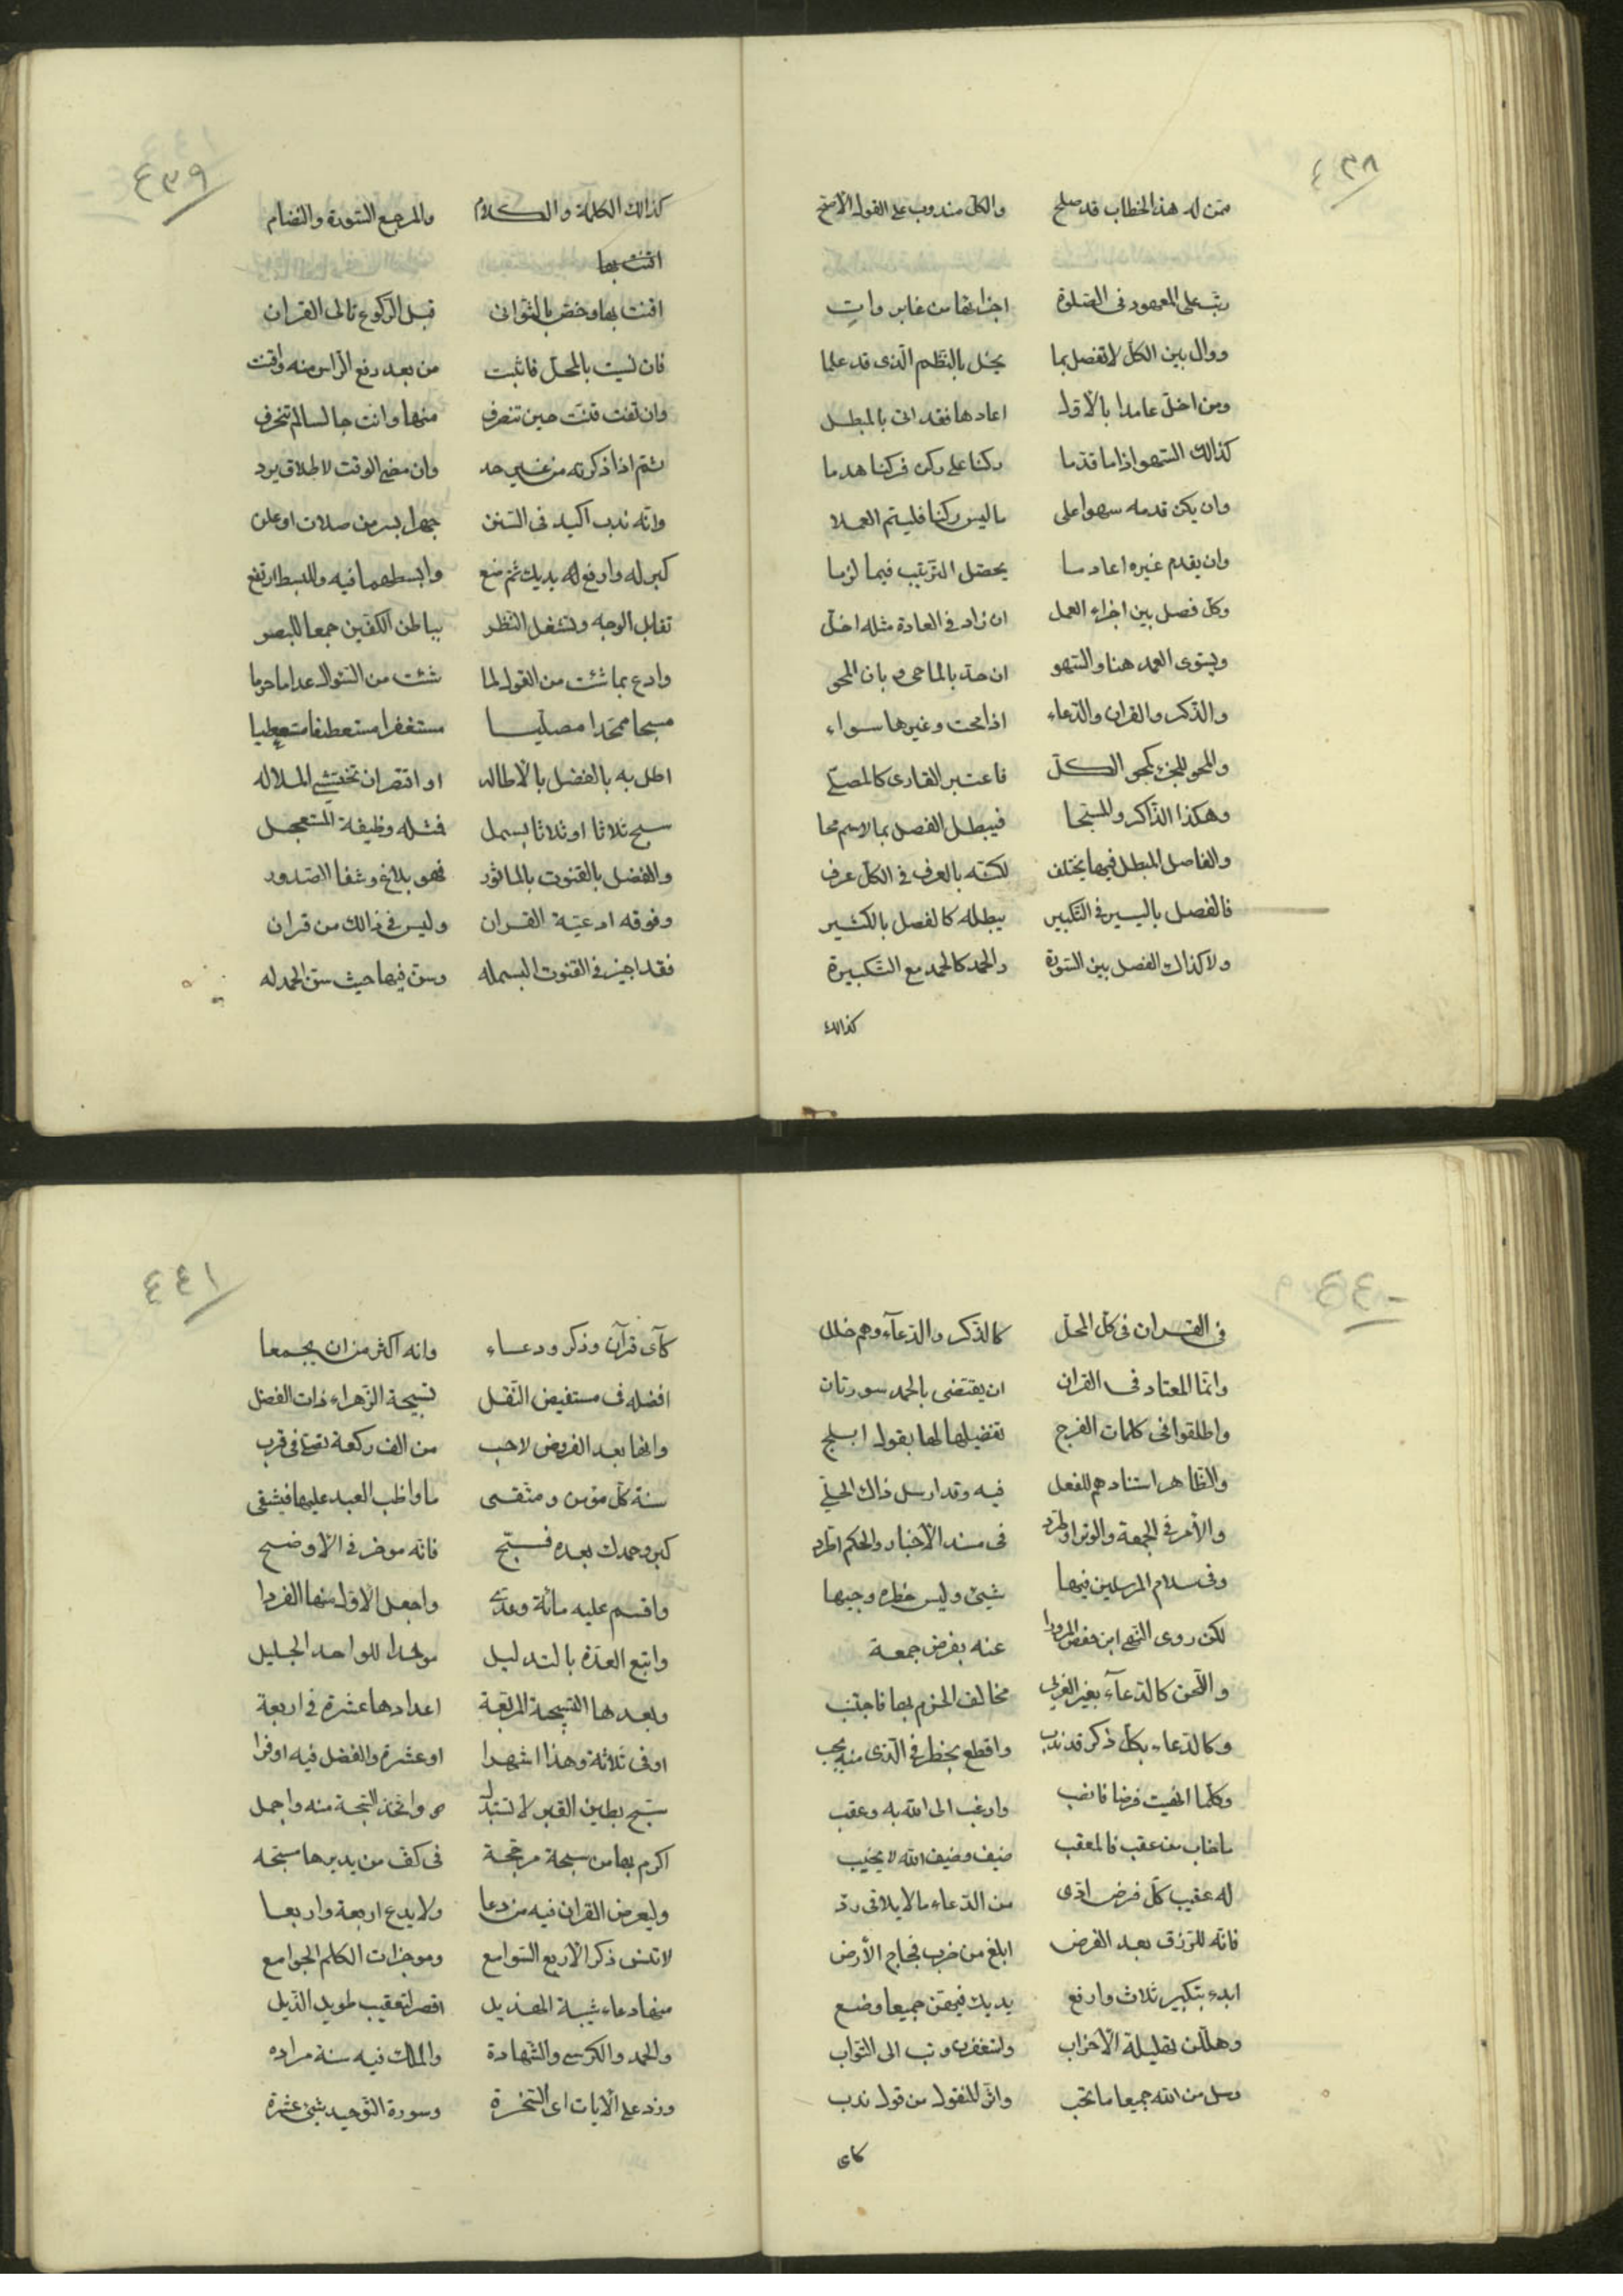 ٤٣٨
ممن له هذا الخطاب قد صلح والكل مندوب على القول الاصح
رتب على المعهود فى الصلوة اجزائها من غابر وات
ووال بين الكل لا تفصل بما يخل بالنظم الذى قد علما
ومن اخل عامدا بالاول اعادها فقد اتى بالمبطل
كذالك السهو اذا ما قدما ركنا على ركن فركنا هدما
وان يكن قدمه سهوا على ما ليس ركنا فليتم العملا
وان يقدم غيره اعاد ما يحصل الترتيب فيما لزما
وكل فصل بين اجزاء العمل ان زاد فى العادة مثله اخل
ويستوى العمد هنا والسهو ان حد بالماحى وبان المحو
والذكر والقران والدعاء اذا محت وغيرها سواء
والمحو للجزء كمحو الكل فاعتبر القارى كالمصلى
وهكذا الذاكر والمسبحا فيبطل الفصل بما لاسم محا
والفاصل المبطل فيها يختلف لكنه بالعرف فى الكل عرف
فالفصل باليسير فى التكبير يبطله كالفصل بالكثير
ولا كذاك الفصل بين السورة والحمد كالحمد مع التكبيرة
كذالك
٤٣٩
كذالك الكلمة والكلام والمرجع السورة والنضام
اقنت بها
اقنت بها وخص بالثوانى قبل الركوع تالى القران
فان نسيت بالمحل فاثبت من بعد رفع الراس منه واقنت
وان تفت قنت حين تنصرف منها وانت جالسا لم تنحرف
ثم اذا ذكرته من غير حد وان مضى الوقت لاطلاق يرد
وانه ندب اكيد فى السنن جهرا بسر من صلات او علن
كبر له وارفع له يديك ثم ضع وابسطهما فيه وللبسط ارتفع
تقابل الوجه وتشغل النظر بباطن الكفين جمعا للبصر
وادع بما شئت من القول لما شئت من السئوال عدا ما حرما
مسبحا ممجدا مصليا مستغفرا مستعطفا مستعطيا
اطل به بالفضل بالاطاله او اقتصر ان تختشى الملاله
سبح ثلاثا او ثلاثا بسمل فتله وظيفة المستعجل
والفضل بالقنوت بالماثور فهو بلاغ وشفا الصدور
وفوقه ادعية القران وليس فى ذالك من قران
فقد اجيز فى القنوت البسمله وسن فيها حيث سن الحمد له
٤٤٠
فى القران فى كل المحل كالذكر والدعآء وهم خلل
وانما المعتاد فى القران ان يقتضى بالحمد سورتان
واطلقوا فى كلمات الفرج تفضيلها لها بقول ابلج
والظاهر استنادهم للفعل فيه وقد ارسل ذاك الحلى
والامر فى الجمعة والوتر اوطرد فى مسند الاخبار والحكم اطرد
وفى سلام المرسلين فيها شيئ وليس خطره وجيها
لكن روى النهى ابن حفص المروزا عنه بفرض جمعة
واللحن كالدعآء بغير العربى مخالف الحزم بها فاجتنب
وكالدعاء بكل ذكر قد ندب واقطع بخطر فى الذى منه يجب
وكلما انهيت فرضا فانصب وارغب الى الله به وعقب
ما خاب من عقب فالمعقب ضيف وضيف الله لا يخيب
له عقيب كل فرض ادى من الدعاء ما لا يلاقى رد
فانه للرزق بعد الفرض ابلغ من ضرب فجاج الارض
ابدء بتكبير ثلاث وارفع يديك فيهن جميعا وضع
وهللن تهليلة الاحزاب واستغفرن وتب الى التواب
وسل من الله جميعا ما تحب واثر المنقول من قول ندب
كاى
٤٤١
كآى قرآن وذكر ودعاء وانه اكثر من ان يجمعا
افضله فى مستفيض النقل تسبيحة الزهراء ذات الفضل
وانها بعد الفريض لاحب من الف ركعة تصلى فى قرب
سنة كل مؤمن ومتقى ما واظب العبد عليها فشقى
كبر وحمدك بعده فسبح فانه موخر فى الاوضح
واقسم عليه مائة وعددا واجعل الاول منها الفردا
واتبع العدة بالتهليل موحدا للواحد الجليل
وبعدها التسبيحة المربعة اعدادها عشرة فى اربعة
او فى ثلاثة وهذا اشهرا او عشرة والفضل فيه اوفرا
سبح بطين القبر لا تستبدل واتخذ السبحة منه واجمل
اكرم بها من سبحة مرجحة فى كف من يديرها مسبحه
وليعرض القران فيه من دعا ولا يدع اربعة واربعا
لا تنس ذكر الاربع السوامع وموجزات الكلم الجوامع
منها دعاء شيبة الهذيل اقصر لتعقيب طويل الذيل
والحمد والكرسى والشهادة والملك فيه سنة مراده
وزد على الايات اى السخرة وسورة التوحيد ثنى عشرة